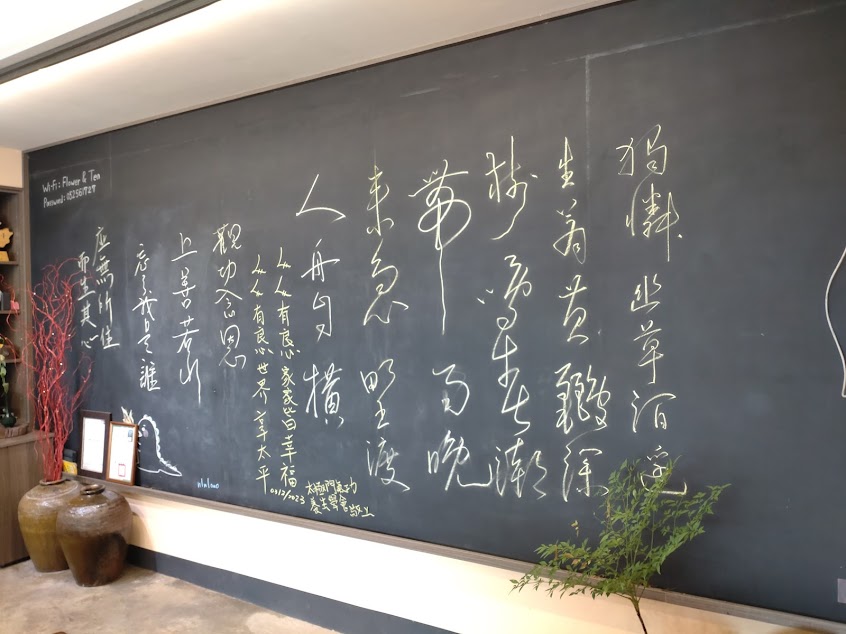 Wi-Fi: Flower & Tea
Password: 032561727
獨憐幽草澗邊
生上有黃鸝深
樹鳴春潮
帶雨晚
來急野渡
人舟自橫
人人有良心家家皆幸福
人人有良心世界享太平
太極門氣功
養生學會敬上
觀功念恩
上善若水
忘了我是誰
應無所住
而生其心